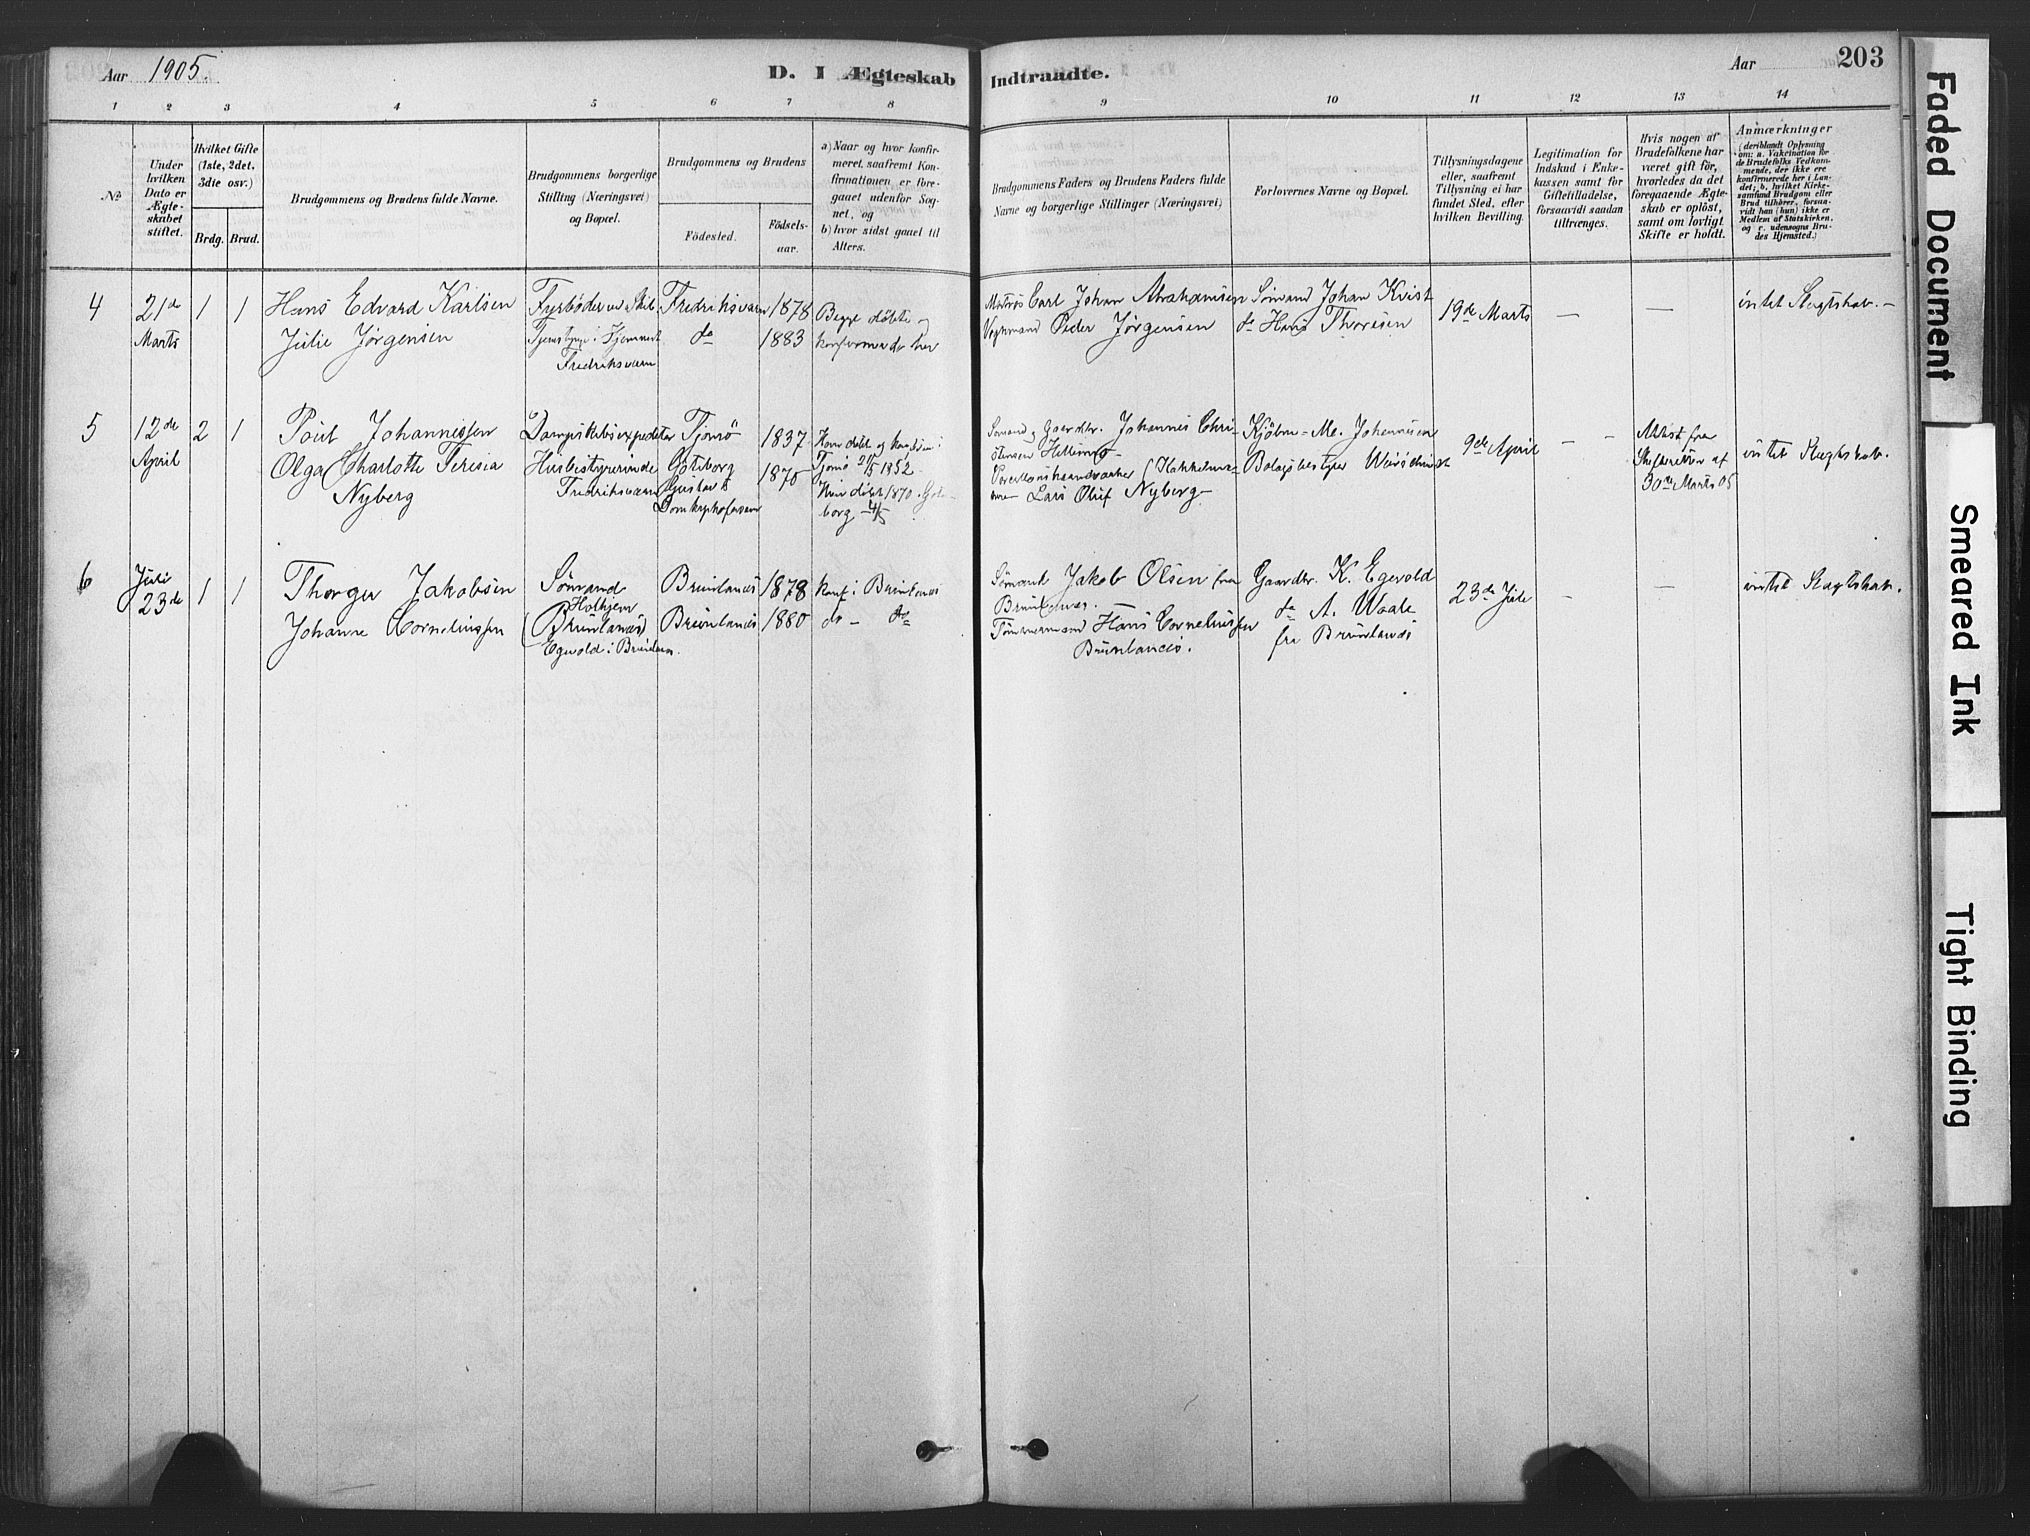 Aar 1905.
D. I Ægteskab
Indtraadte.
Aar
203
1 2 3 4 5 6 7 8 9 10 11 12 13 14
№
Under
hvilken
Dato er
Ægte-
skabet
stiftet.
Hvilket Gifte
(1ste, 2det,
3die osv.)
Brdg.
Brud.
Brudgommens og Brudens fulde Navne.
Brudgommens borgerlige
Stilling (Næringsvei)
og Bopæl.
Brudgommens og Brudens
Födested.
Födsels-
aar.
a) Naar og hvor konfir-
meret, saafremt Kon-
firmationen er fore-
gaaet udenfor Sog-
net, og
b) hvor sidst gaaet til
Alters.
Brudgommens Faders og Brudens Faders fulde
Navne og borgerlige Stillinger (Næringsvei)
Forlovernes Navne og Bopæl.
Tillysningsdagene
eller, saafremt
Tillysning ei har
fundet Sted, efter
hvilken Bevilling.
Legitimation for
Indskud i Enke-
kassen samt for
Giftetilladelse,
forsaavidt saadan
tiltrænges.
Hvis nogen af
Brudefolkene har
været gift för,
hvorledes da det
foregaaende Ægte-
skab er oplöst,
samt om lovligt
Skifte er holdt.
Anmærkninger
(deriblandt Oplysning
om: a. Vakcination for
de Brudefolks Vedkom-
mende, der ikke ere
konfirmerede her i Lan-
det; b. hvilket Kirke-
samfund Brudgom eller
Brud tilhörer, forsaa-
vidt han (hun) ikke er
Medlem af Statskirken,
og c. udensogns Bru-
des Hjemsted.)
4
21de
Marts
1 1
Hans Edvard Karlsen
Julie Jörgensen
Fyrböder
Fredriksværn
Fredriksværn 1878
do 1883
Begge döbte og
konfirmerede her
Matros Carl Johan Abrahamsen
Peder Jörgensen
Sömand Johan Kvist
do Hans Thoresen
19de Marts
—
—
intet Slegtskab. -
5
12de
April
2 1
Poul Johannessen
Olga Charlotte Teresia
Nyberg
Dampskibsexpeditör
Husbestyrerinde
Fredriksværn
Tjömö 1837
Göteborg 1875
Gustavs
Ham döbt og konf.
Tjömö 1852
Hun döbt 1870 Göte-
borg
Sömand, Gaardbr. Johannes Chri-
stensen
Lars Oluf Nyberg
Kjöbm. M. Johannesen
9de April
- -
Attest fra
Skifteretten af
30te Marts 05
intet Slegtskab.
6
Juli
23de
1 1
Thorger Jakobsen
Johanne Cornelinssen
Sömand
(Brunlanæs)
Egevold i Brunlanæs.
Brunlanæs 1878
Brunlanæs 1880
konf. i Brunlanæs
do - do
Sömand Jakob Olsen fra
Brunlanæs.
Tömmermand Hans Cornelinssen
Brunlanæs.
Gaardbr. K. Egevold
do A. Waale
fra Brunlanæs
23de Juli
-
—
intet Slegtskab.
Faded Document
Smeared Ink
Tight Binding